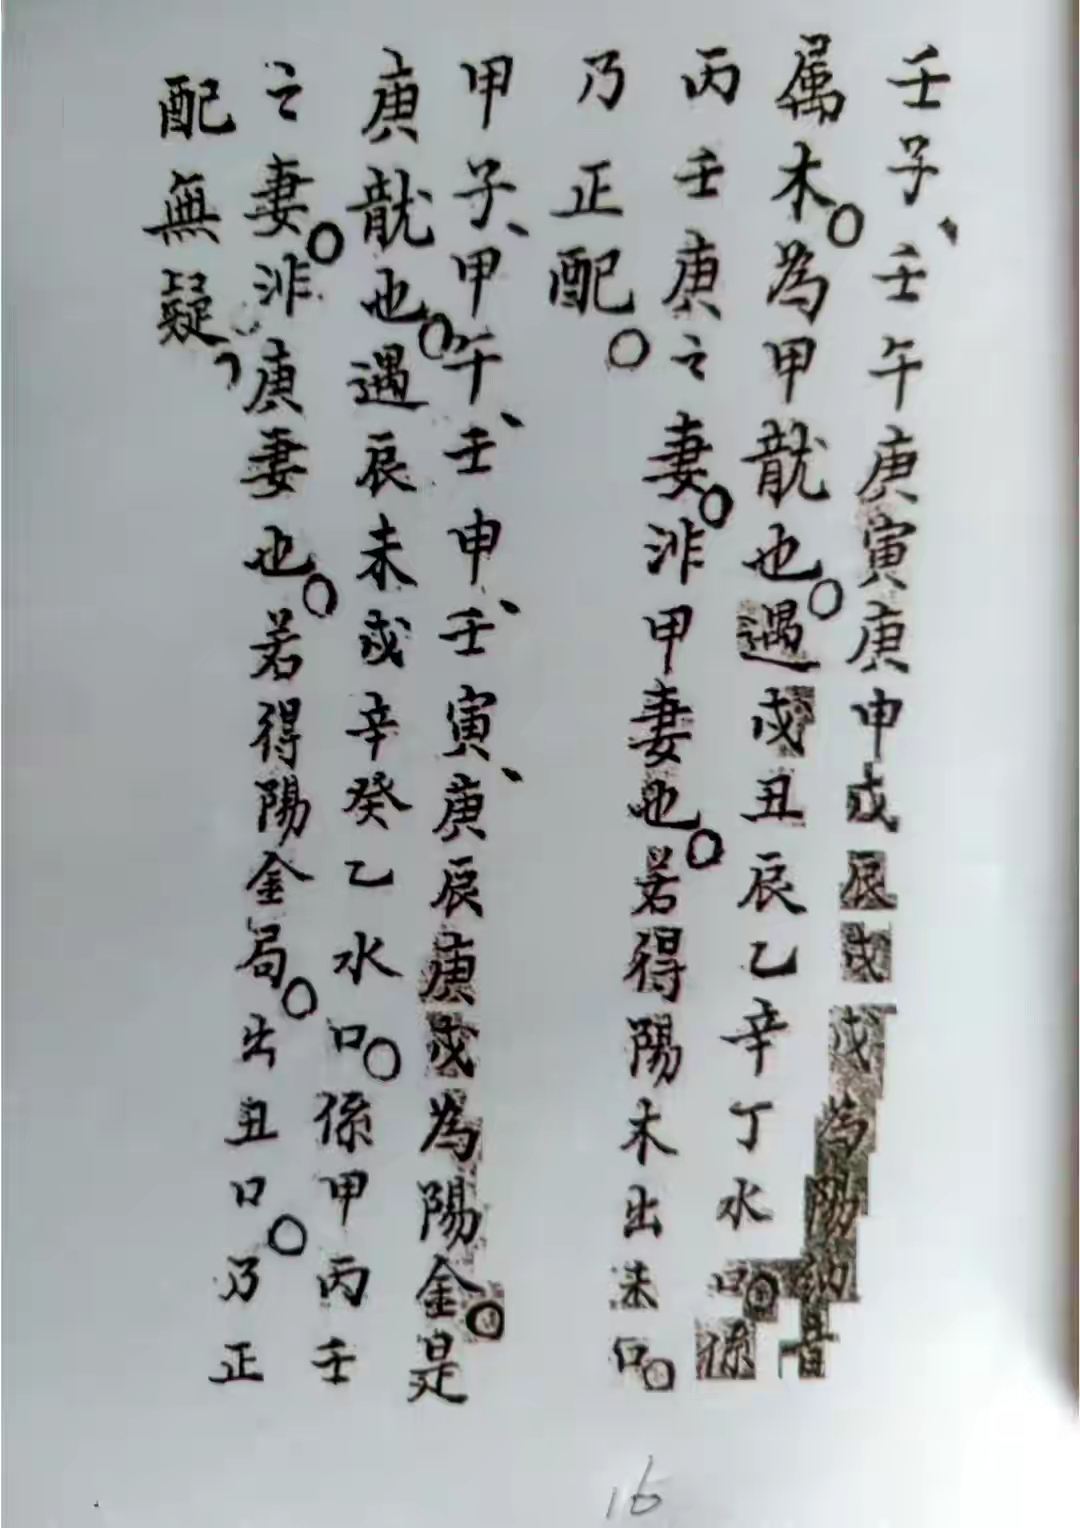 壬子、壬午庚寅庚申戌辰戌戌為陽納音
属木。為甲龍也。遇戌丑辰乙辛丁水口。係
丙壬庚之妻。非甲妻也。若得陽木出未口。
乃正配。
甲子、甲午、壬申、壬寅、庚辰庚戌為陽金。是
庚龍也。遇辰未戌辛癸乙水口。係甲丙壬
之妻。非庚妻也。若得陽金局。出丑口。乃正
配無疑，
16